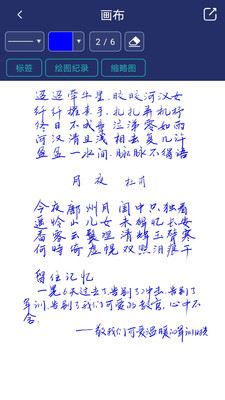 画布
2 / 6
标签
绘图纪录
缩略图
迢迢牵牛星，皎皎河汉女
纤纤擢素手，札札弄机杼
终日不成章 泣涕零如雨
河汉清且浅 相去复几许
盈盈一水间，脉脉不得语
月夜 杜甫
今夜鄜州月 闺中只独看
遥怜小儿女 未解忆长安
香雾云鬟湿 清辉玉臂寒
何时倚虚幌 双照泪痕干
留住记忆
一晃6天过去了，告别了冲击，告别了
军训，告别了我们可爱的教官，心中不
舍.
——致我们可爱温暖的军训